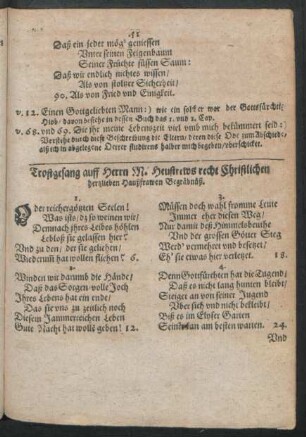 51
Daß ein jeder mög' geniessen
Vnter seinen Feigenbaum
Seiner Früchte süssen Saum:
Daß wir endlich nichtes wissen/
Als von stolzer Sicherheit/
90. Als von Fried und Einigkeit.
v. 12. Einen Gottgeliebten Mann:) wie ein solcher war der Gottsfürchtige
Hiob/ davon bestehe in dessen Buch das 1. und 2. Cap.
v. 68. und 69. Die ihr meine Lebenszeit viel vmb mich bekümmert seid:)
Verstehe durch diese Beschreibung die Eltern/ denen diese Ode zum Abschiede/
als ich in abgelegene Örter studierens halber mich begeben/überschicket.
Trostgesang auff Herrn M. Heustrews recht Christlichen
hertzlieben Haußfrawen Begräbnüß.
1.
Oder reichergötzten Seelen!
Was ists/ dz so weinen wir/
Demnach ihres Leibes höhlen
Lebloß sie gelassen hier?
Vnd zu dem/ der sie geliehen/
Wiederumb hat wollen fliehen? 6.
2.
Winden wir darumb die Hände/
Daß das Sorgen-volle Joch
Ihres Lebens hat ein ende/
Das sie vns zu zeitlich noch
Diesem Jammerreichen Leben
Gute Nacht hat wolle geben! 12.
3.
Müssen doch wahl fromme Leute
Immer eher diesen Weg/
Nur damit deß Himmelsbeuthe
Vnd der grossen Götter Steg
Werd' vermehret vnd besetzet/
Eh' sie etwas hier verletzet. 18.
4.
Denn Gottfürchten hat die Tugend/
Daß es nicht lang hunten bleibt/
Steiget an von seiner Jugend
Vbersich vnd nicht bekleibt/
Biß es im Elyser Garten
Seinkan am besten warten. 24.
Vnd